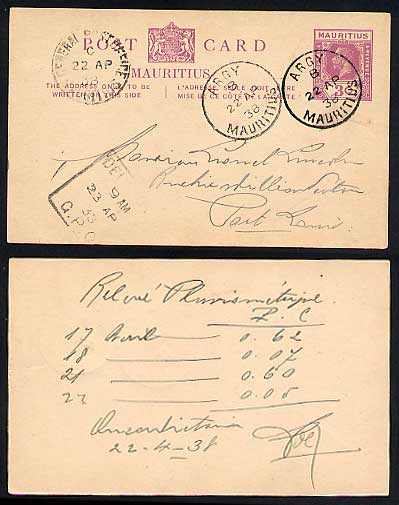 POST CARD
MAURITIUS
THE ADDRESS ONLY TO BE WRITTEN ON THIS SIDE
L'ADRESSE SEULE DOIT ÊTRE MISE DE CE COTÉ DE LA CARTE
MAURITIUS
GENERAL POST OFFICE
C
22 AP
38
ARGY
B
22 AP
38
MAURITIUS
ARGY
B
22 AP
38
MAURITIUS
DEL
9 AM
23 AP
38
G.P.O
Monsieur Lionel Lincoln
Port Louis
Relevé Pluviométrique
P. C
17 Avril — 0.62
18 — 0.07
21 — 0.60
22 — 0.05
22-4-38